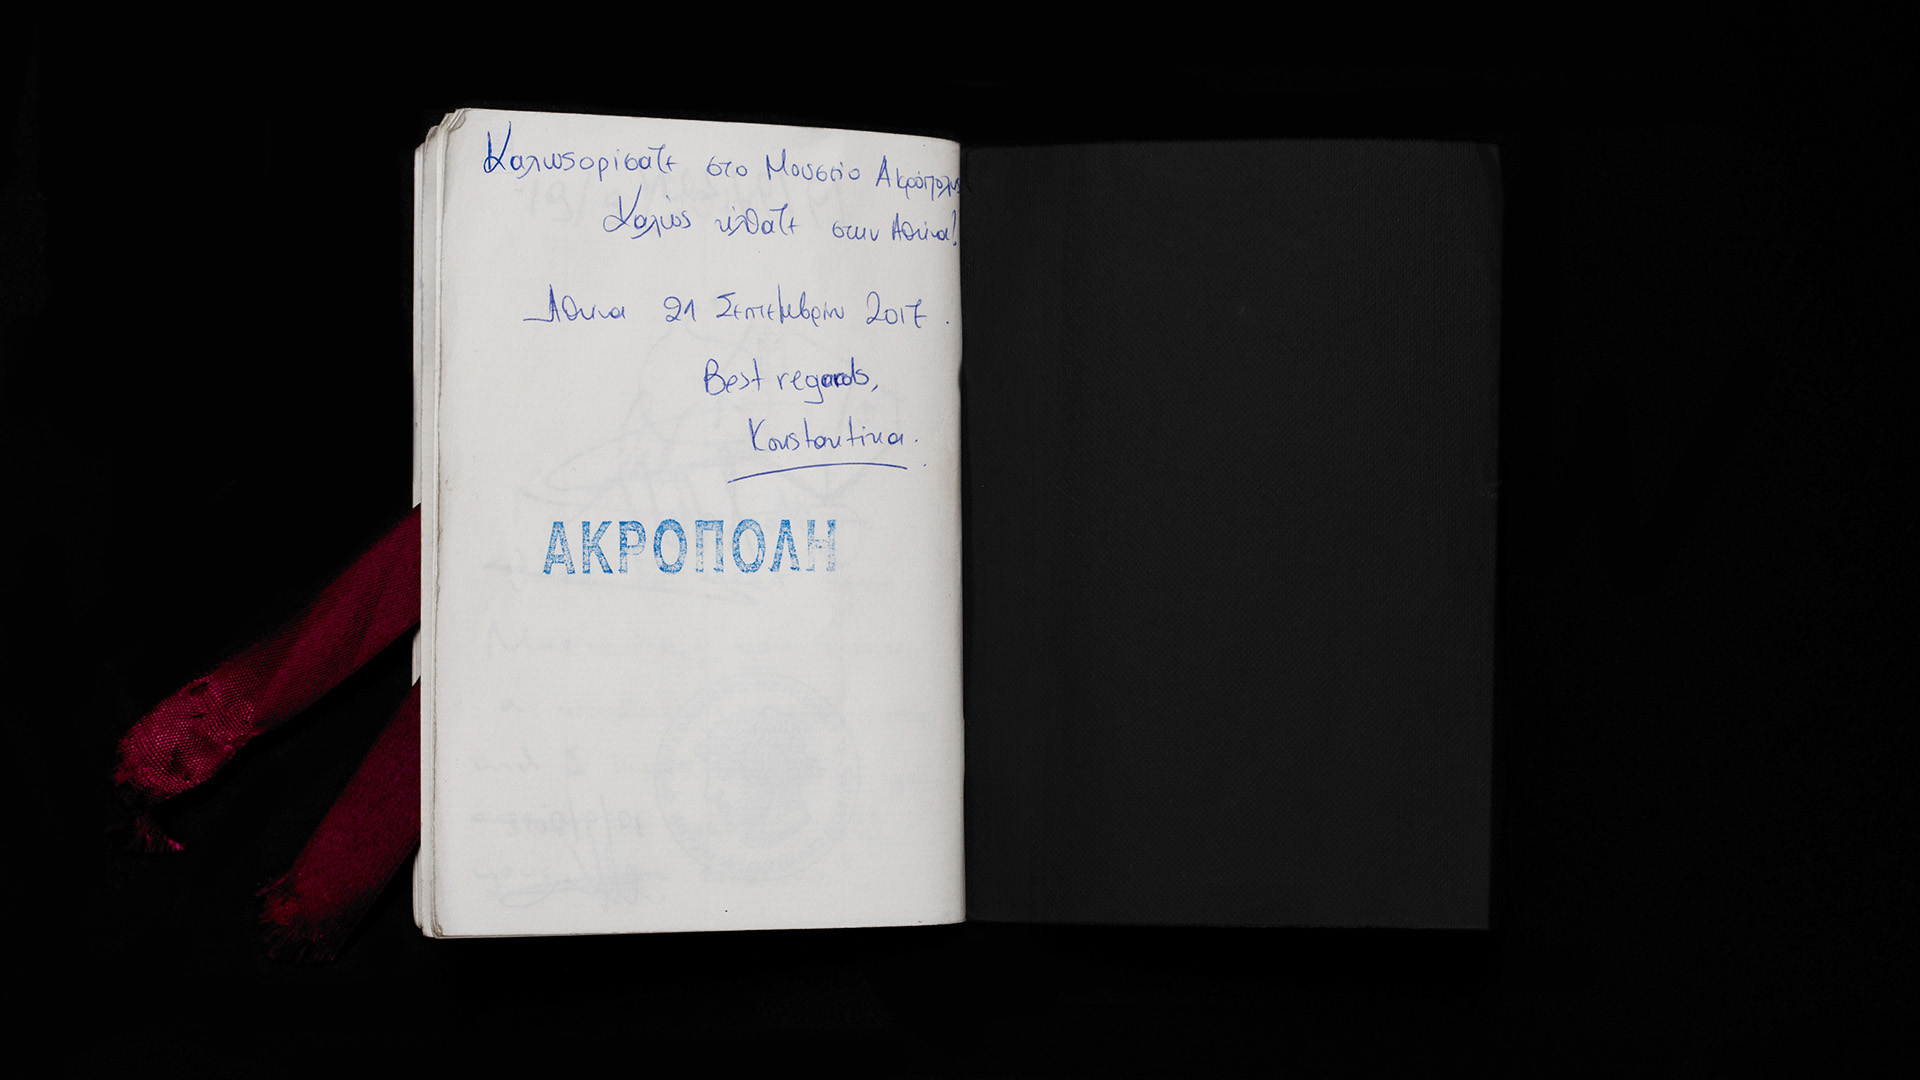 Καλωσορίσατε στο Μουσείο Ακρόπολης
Καλώς ήλθατε στην Αθήνα!
Αθήνα 21 Σεπτεμβρίου 2017.
Best regards,
Konstantina.
ΑΚΡΟΠΟΛΗ